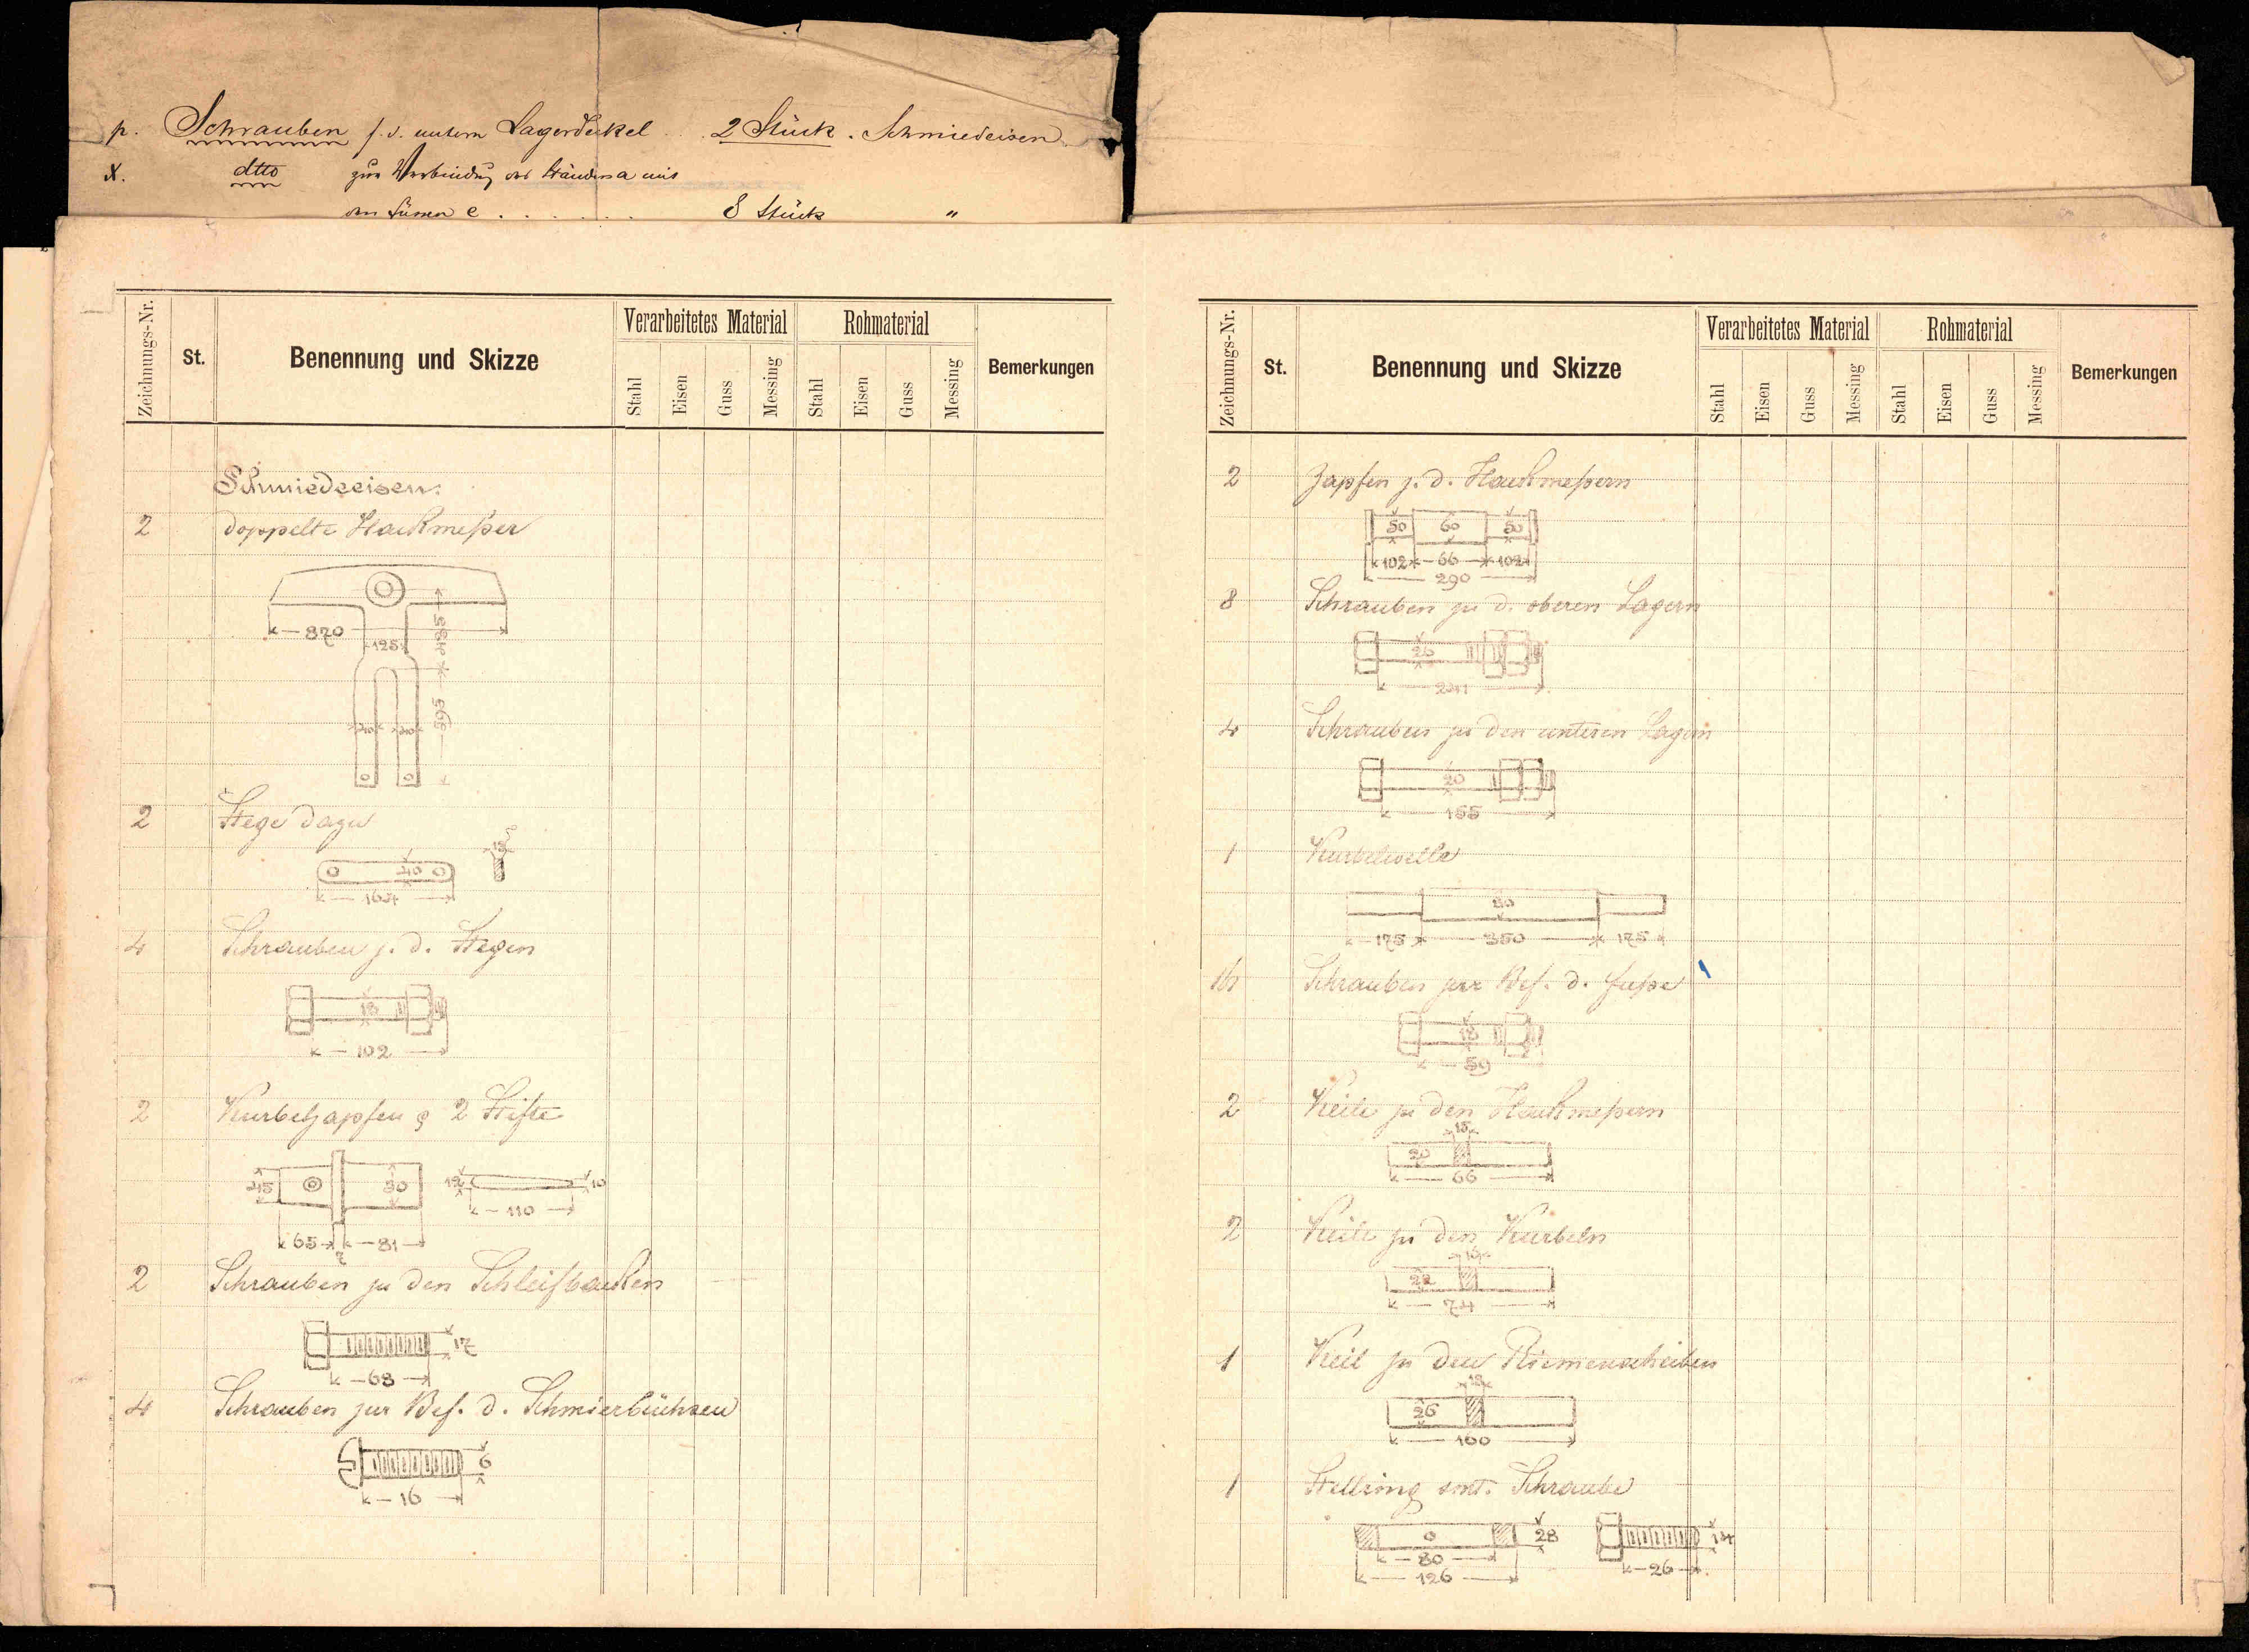 p. Schrauben f. d. untern Lagerdeckel . . 2 Stück . Schmiedeisen
x. dtto zur Verbindung des Ständers a mit
den Füssen e . . . . . . 8 Stück "
Zeichnungs-Nr. St. Benennung und Skizze Verarbeitetes Material Rohmaterial Bemerkungen
Stahl Eisen Guss Messing Stahl Eisen Guss Messing
Schmiedeeisen:
2 doppelte Hackmeßer
870
125
485
595
2 Stege dazu
40
164
4 Schrauben z. d. Stegen
18
102
2 Kurbelzapfen & 2 Stifte
45 50 12 10
110
65 81
7
2 Schrauben zu den Schleifbacken
17
68
4 Schrauben zur Bef. d. Schmierbüchsen
6
16
Zeichnungs-Nr. St. Benennung und Skizze Verarbeitetes Material Rohmaterial Bemerkungen
Stahl Eisen Guss Messing Stahl Eisen Guss Messing
2 Zapfen z. d. Hackmeßern
50 60 50
102 66 102
290
8 Schrauben zu d. oberen Lagern
26
241
4 Schrauben zu den unteren Lagern
20
155
1 Kurbelwelle
80
175 350 175
16 Schrauben zur Bef. d. Füße
18
59
2 Keile zu den Hackmeßern
15
20
66
2 Keile zu den Kurbeln
22
74
1 Keil zu den Riemenscheiben
26
100
1 Stellring smt. Schraube
28 14
80 26
126